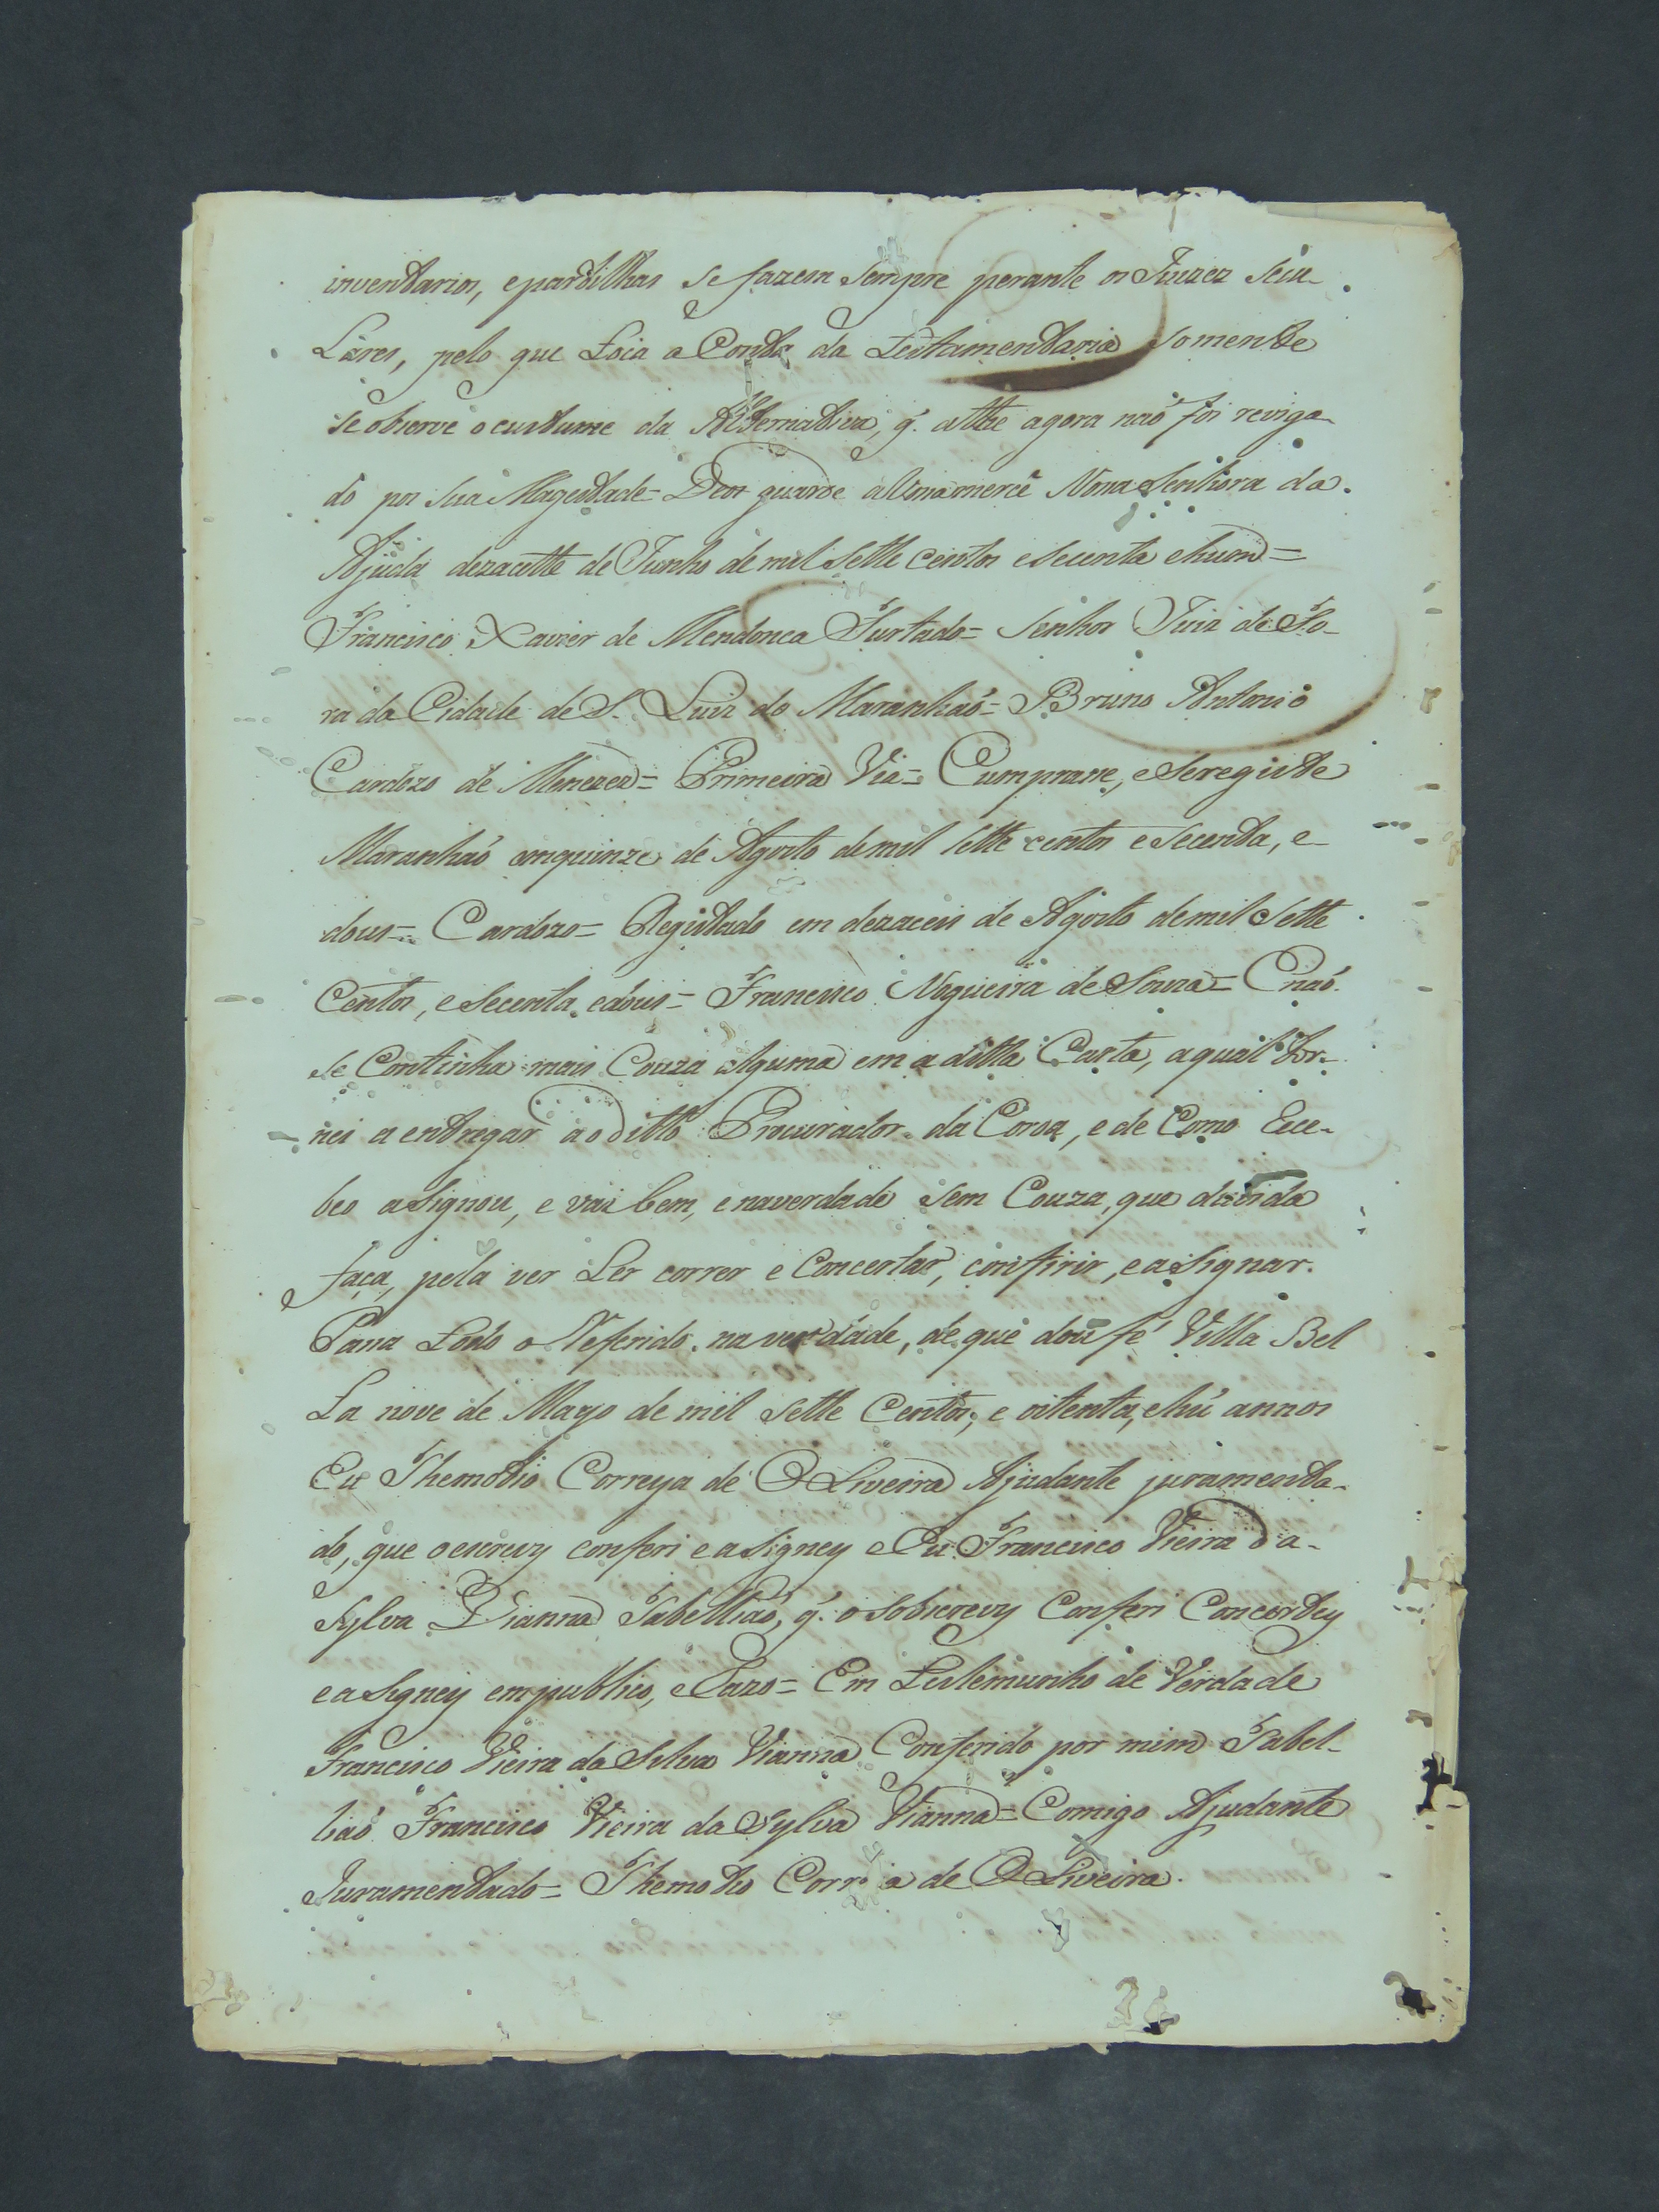 inventarios, epartilhas se fazem sempre perante os Juizes secu-
Lares, pelo que Toca a Conta da Testamentaria somente
se observe o custume da Alternativa, q. atthe agora naõ foi revoga-
do por Sua Magestade = Deos guarde aVosamerce Nossa Senhora da
Ajuda dezasette de Junho de mil sette centos esecenta ehum =
Francisco Xavier de Mendonca Furtado = Senhor Juiz de Fo-
ra da Cidade de S. Luiz do Maranhaõ = Bruno Antonio
Cardozo de Menezes = Primeira Via = Cumprasse, eSeregiste
Maranhaõ emquinze de Agosto demil sette centos eSecenta, e
dous = Cardozo = Registado em dezaceis de Agosto demil Sette
Centos, eSecenta, edous = Francisco Nogueira de Souza = Enaõ
se Continha mais Couza alguma em a ditta Carta, aqual tor-
nei a entregar ao ditto Procurador da Coroa, e de Como Rece-
beo aSignou, e vai bem, enaverdade sem Couza, que duvida
faça, pela ver Ler correr e Concertar, confirir, eaSignar.
Passa Todo o Referido na verdade, de que dou fé Villa Bel
La nove de Mayo de mil Sette Centos, e oitenta, ehú annos
Eu Themotio Correya de OLiveira Ajudante juramenta-
do, que oescrevy conferi eaSigney eEu Francisco Vieira da
Sylva Vianna Tabelliaõ, q. o sobscrevy Conferi Concertey
eaSigney empublico, eRazo = Em Testemunho de Verdade
Francisco Vieira da Silva Vianna Conferido por mim Tabel-
liaõ Francisco Vieira da Sylva Vianna = Comigo Ajudante
Juramentado = Themotio Corr a de OLiveira.